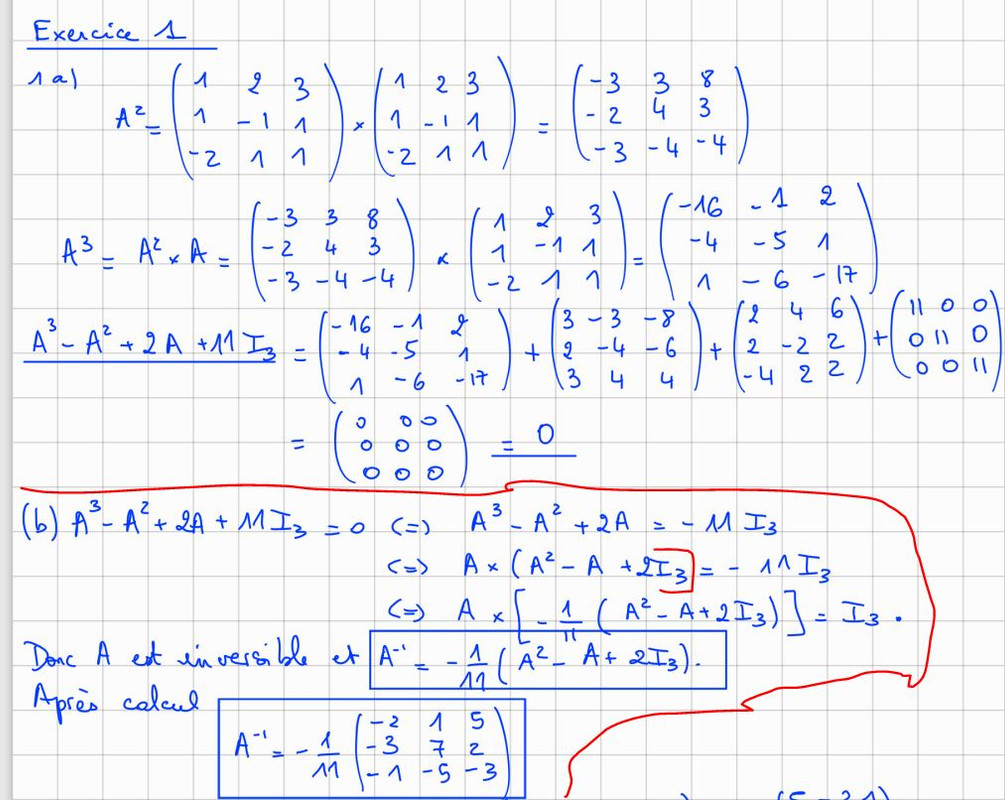 Exercice 1
1a) A² = (1 2 3; 1 -1 1; -2 1 1) × (1 2 3; 1 -1 1; -2 1 1) = (-3 3 8; -2 4 3; -3 -4 -4)
A³ = A² × A = (-3 3 8; -2 4 3; -3 -4 -4) × (1 2 3; 1 -1 1; -2 1 1) = (-16 -1 2; -4 -5 1; 1 -6 -17)
A³ - A² + 2A + 11 I₃ = (-16 -1 2; -4 -5 1; 1 -6 -17) + (3 -3 -8; 2 -4 -6; 3 4 4) + (2 4 6; 2 -2 2; -4 2 2) + (11 0 0; 0 11 0; 0 0 11)
= (0 0 0; 0 0 0; 0 0 0) = 0
(b) A³ - A² + 2A + 11 I₃ = 0 (=) A³ - A² + 2A = - 11 I₃
(=) A × (A² - A + 2I₃] = - 11 I₃
(=) A × [- 1/11 (A² - A + 2I₃)] = I₃.
Donc A est inversible et A⁻¹ = - 1/11 (A² - A + 2I₃).
Après calcul
A⁻¹ = - 1/11 (-2 1 5; -3 7 2; -1 -5 -3)